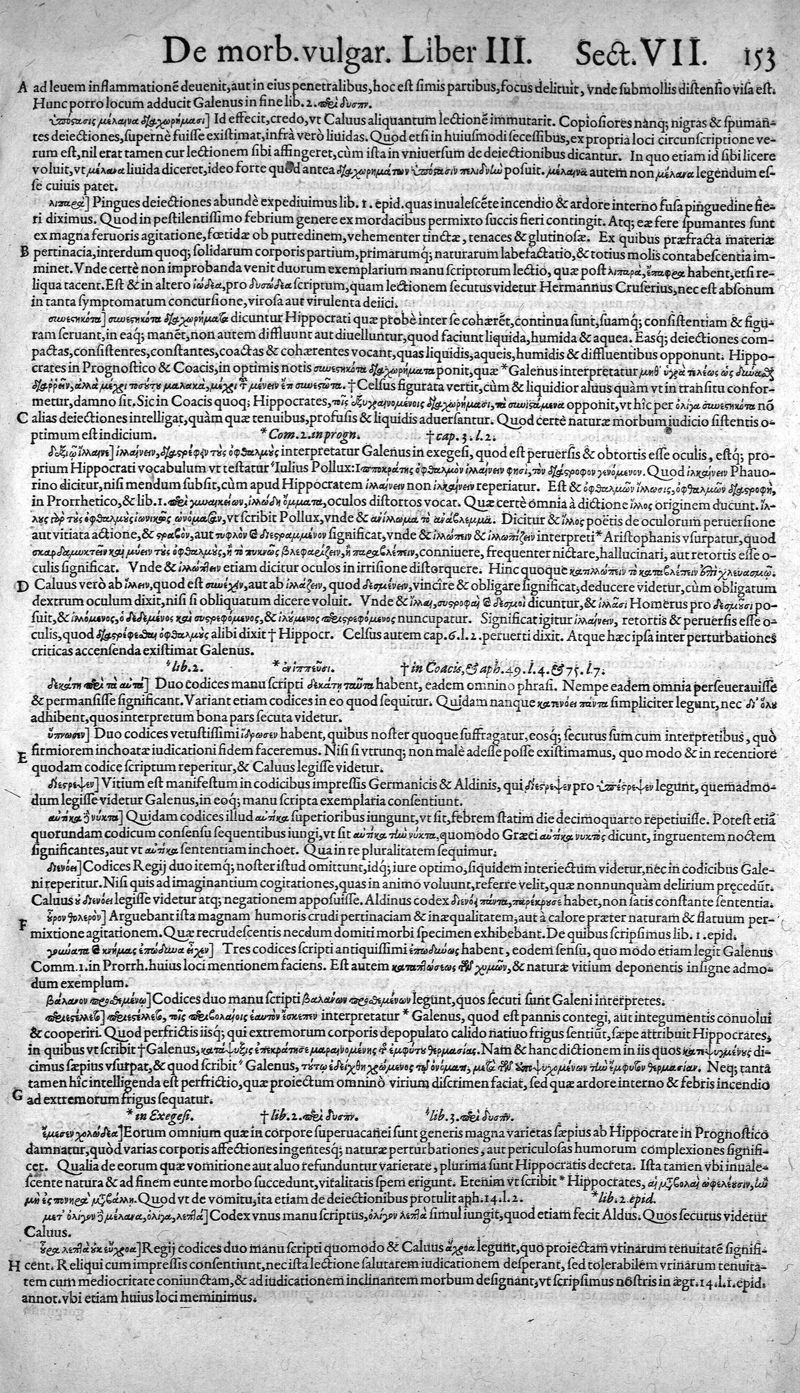 De morb. vulgar. Liber III. Sect. VII. 153
A ad leuem inflammationē deuenit, aut in eius penetralibus, hoc est simis partibus, focus delituit, Vnde submollis distensio visa est.
Hunc porro locum adducit Galenus in fine lib. 2.
] Id effecit, credo, vt Caluus aliquantum lectionē immutarit. Copiosiores nanq; nigras & spuman-
tes deiectiones, supernè fuisse existimat, infrà verò liuidas. Quod etsi in huiusmodi secessibus, ex propria loci circunscriptione ve-
rum est, nil erat tamen cur lectionem sibi affingeret, cùm ista in vniuersum de deiectionibus dicantur. In quo etiam id sibi licere
voluit, vt μέλανα liuida diceret, ideo forte quod antea posuit. μέλαινα autem non μέλανα legendum es-
se cuiuis patet.
λιπαρὰ] Pingues deiectiones abundè expediuimus lib. 1. epid. quas inualescēte incendio & ardore interno fusa pinguedine fie-
ri diximus. Quod in pestilentissimo febrium genere ex mordacibus permixto succis fieri contingit. Atq; eæ fere spumantes sunt
ex magna feruoris agitatione, fœtidæ ob putredinem, vehementer tinctæ, tenaces & glutinosæ. Ex quibus præfracta materiæ
B pertinacia, interdum quoq; solidarum corporis partium, primarumq; naturarum labefactatio, & totius molis contabescentia im-
minet. Vnde certè non improbanda venit duorum exemplarium manu scriptorum lectio, quæ post λιπαρὰ, ἔπαφρα habent, etsi re-
liqua tacent. Est & in altero ἰώδεα, pro δυσώδεα scriptum, quam lectionem secutus videtur Hermannus Cruserius, nec est absonum
in tanta symptomatum concursione, virosa aut virulenta deiici.
συνεστηκότα] συνεστηκότα διαχωρήματα dicuntur Hippocrati quæ probè inter se cohærēt, continua sunt, suamq; consistentiam & figu-
ram seruant, in eaq; manēt, non autem diffluunt aut diuelluntur, quod faciunt liquida, humida & aquea. Easq; deiectiones com-
pactas, consistentes, constantes, coactas & cohærentes vocant, quas liquidis, aqueis, humidis & diffluentibus opponunt. Hippo-
crates in Prognostico & Coacis, in optimis notis συνεστηκότα διαχωρήματα ponit, quæ * Galenus interpretatur
† Celsus figurata vertit, cùm & liquidior aluus quàm vt in transitu confor-
metur, damno sit. Sic in Coacis quoq; Hippocrates, opponit, vt hîc per ὀλίγα συνεστηκότα nō
C alias deiectiones intelligat, quàm quæ tenuibus, profusis & liquidis aduersantur. Quod certè naturæ morbum iudicio sistentis o-
ptimum est indicium. * Com. 2. in progn. † cap. 3. l. 2.
interpretatur Galenus in exegesi, quod est peruersis & obtortis esse oculis, estq; pro-
prium Hippocrati vocabulum vt testatur Iulius Pollux: Quod Phauo-
rino dicitur, nisi mendum subsit, cùm apud Hippocratem ἰλλαίνειν non reperiatur. Est &
in Prorrhetico, & lib. 1. oculos distortos vocat. Quæ certè omnia à dictione ἰλλὸς originem ducunt.
vt scribit Pollux, vnde & Dicitur & ἰλλὸς poëtis de oculorum peruersione
aut vitiata actione, & στραβὸν, aut τυφλὸν & διεστραμμένον significat, vnde & interpreti * Aristophanis vsurpatur, quod
conniuere, frequenter nictare, hallucinari, aut retortis esse o-
culis significat. Vnde & etiam dicitur oculos in irrisione distorquere. Hinc quoque
D Caluus verò ab ἴλλειν, quod est συνέχειν, aut ab ἰλλάζειν, quod δεσμεύειν, vincire & obligare significat, deducere videtur, cùm obligatum
dextrum oculum dixit, nisi si obliquatum dicere voluit. Vnde & dicuntur, & Homerus pro δεσμοῖσι po-
suit, & nuncupatur. Significat igitur ἰλλαίνειν, retortis & peruersis esse o-
culis, quod alibi dixit † Hippocr. Celsus autem cap. 6. l. 2. peruerti dixit. Atque hæc ipsa inter perturbationes
criticas accensenda existimat Galenus.
lib. 2. * † in Coacis, & aph. 49. l. 4. & 75. l. 7.
] Duo codices manu scripti δεκάτῃ ταῦτα habent, eadem omnino phrasi. Nempe eadem omnia perseuerauisse
& permansisse significant. Variant etiam codices in eo quod sequitur. Quidam nanque simpliciter legunt, nec
adhibent, quos interpretum bona pars secuta videtur.
ὕπνωσεν] Duo codices vetustissimi ἵδρωσεν habent, quibus noster quoque suffragatur, eosq; secutus sum cum interpretibus, quò
firmiorem inchoatæ iudicationi fidem faceremus. Nisi si vtrunq; non malè adesse posse existimamus, quo modo & in recentiore
E quodam codice scriptum reperitur, & Caluus legisse videtur.
διέστρεψεν] Vitium est manifestum in codicibus impressis Germanicis & Aldinis, qui διέστρεψεν pro ὑπέστρεψεν legunt, quemadmo-
dum legisse videtur Galenus, in eoq; manu scripta exemplaria consentiunt.
] Quidam codices illud αὐτίκα superioribus iungunt, vt sit, febrem statim die decimoquarto repetiuisse. Potest etiā
quorundam codicum consensu sequentibus iungi, vt sit quomodo Græci dicunt, ingruentem noctem
significantes, aut vt αὐτίκα sententiam inchoet. Qua in re pluralitatem sequimur.
διενόει] Codices Regij duo itemq; noster istud omittunt, idq; iure optimo, siquidem interiectum videtur, nec in codicibus Gale-
ni reperitur. Nisi quis ad imaginantium cogitationes, quas in animo voluunt, referre velit, quæ nonnunquàm delirium precedūt.
Caluus οὐ διενόει legisse videtur atq; negationem apposuisse. Aldinus codex habet, non satis constante sententia.
F οὖρον θολερὸν] Arguebant ista magnam humoris crudi pertinaciam & inæqualitatem, aut à calore præter naturam & flatuum per-
mixtione agitationem. Quæ recrudescentis necdum domiti morbi specimen exhibebant. De quibus scripsimus lib. 1. epid.
] Tres codices scripti antiquissimi ἐπωδύνως habent, eodem sensu, quo modo etiam legit Galenus
Comm. 1. in Prorrh. huius loci mentionem faciens. Est autem & naturæ vitium deponentis insigne admo-
dum exemplum.
] Codices duo manu scripti legunt, quos secuti sunt Galeni interpretes.
interpretatur * Galenus, quod est pannis contegi, aut integumentis conuolui
& cooperiri. Quod perfrictis iisq; qui extremorum corporis depopulato calido natiuo frigus sentiūt, sæpe attribuit Hippocrates,
in quibus vt scribit † Galenus, Nam & hanc dictionem in iis quos κατεψυγμένους di-
cimus sæpius vsurpat, & quod scribit Galenus, Neq; tantā
tamen hîc intelligenda est perfrictio, quæ proiectum omninò virium discrimen faciat, sed quæ ardore interno & febris incendio
G ad extremorum frigus sequatur.
* in Exegesi. † lib. 2. lib. 3.
] Eorum omnium quæ in corpore superuacanei sunt generis magna varietas sæpius ab Hippocrate in Prognostico
damnatur, quòd varias corporis affectiones ingentesq; naturæ perturbationes, aut periculosas humorum complexiones signifi-
cet. Qualia de eorum quæ vomitione aut aluo refunduntur varietate, plurima sunt Hippocratis decreta. Ista tamen vbi inuale-
scente natura & ad finem eunte morbo succedunt, vitalitatis spem erigunt. Etenim vt scribit * Hippocrates,
Quod vt de vomitu, ita etiam de deiectionibus protulit aph. 14. l. 2. * lib. 2. epid.
] Codex vnus manu scriptus, ὀλίγον λεπτὰ simul iungit, quod etiam fecit Aldus. Quos secutus videtur
Caluus.
] Regij codices duo manu scripti quomodo & Caluus ἄχροα legunt, quo proiectam vrinarum tenuitatē signifi-
H cent. Reliqui cum impressis consentiunt, nec ista lectione salutarem iudicationem desperant, sed tolerabilem vrinarum tenuita-
tem cum mediocritate coniunctam, & ad iudicationem inclinantem morbum designant, vt scripsimus nostris in ægr. 14. l. 1. epid.
annot. vbi etiam huius loci meminimus.